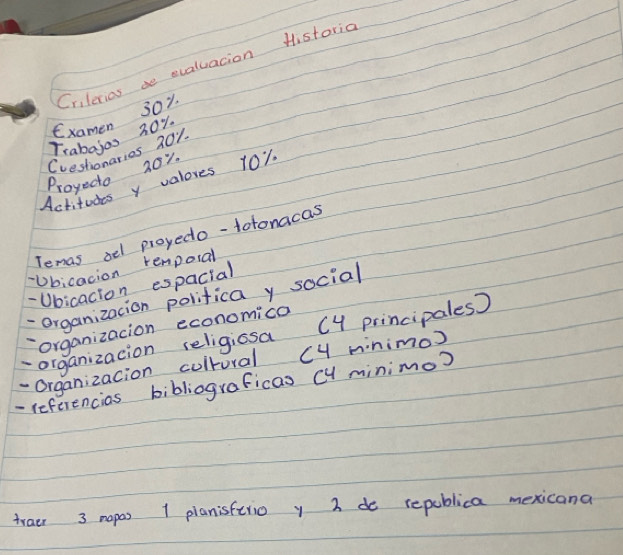 Criterios de evaluacion Historia
Examen 30%
Trabajos 20%
Cuestionarios 20%
Proyecto 20%
Actitudes y valores 10%
Temas del proyecto - totonacas
- Ubicacion temporal
- Ubicacion espacial
- Organizacion politica y social
- organizacion economica
- organizacion religiosa (4 principales)
- Organizacion cultural (4 minimo)
- referencias bibliograficas (4 minimo)
traer 3 mapas 1 planisferio y 2 de republica mexicana